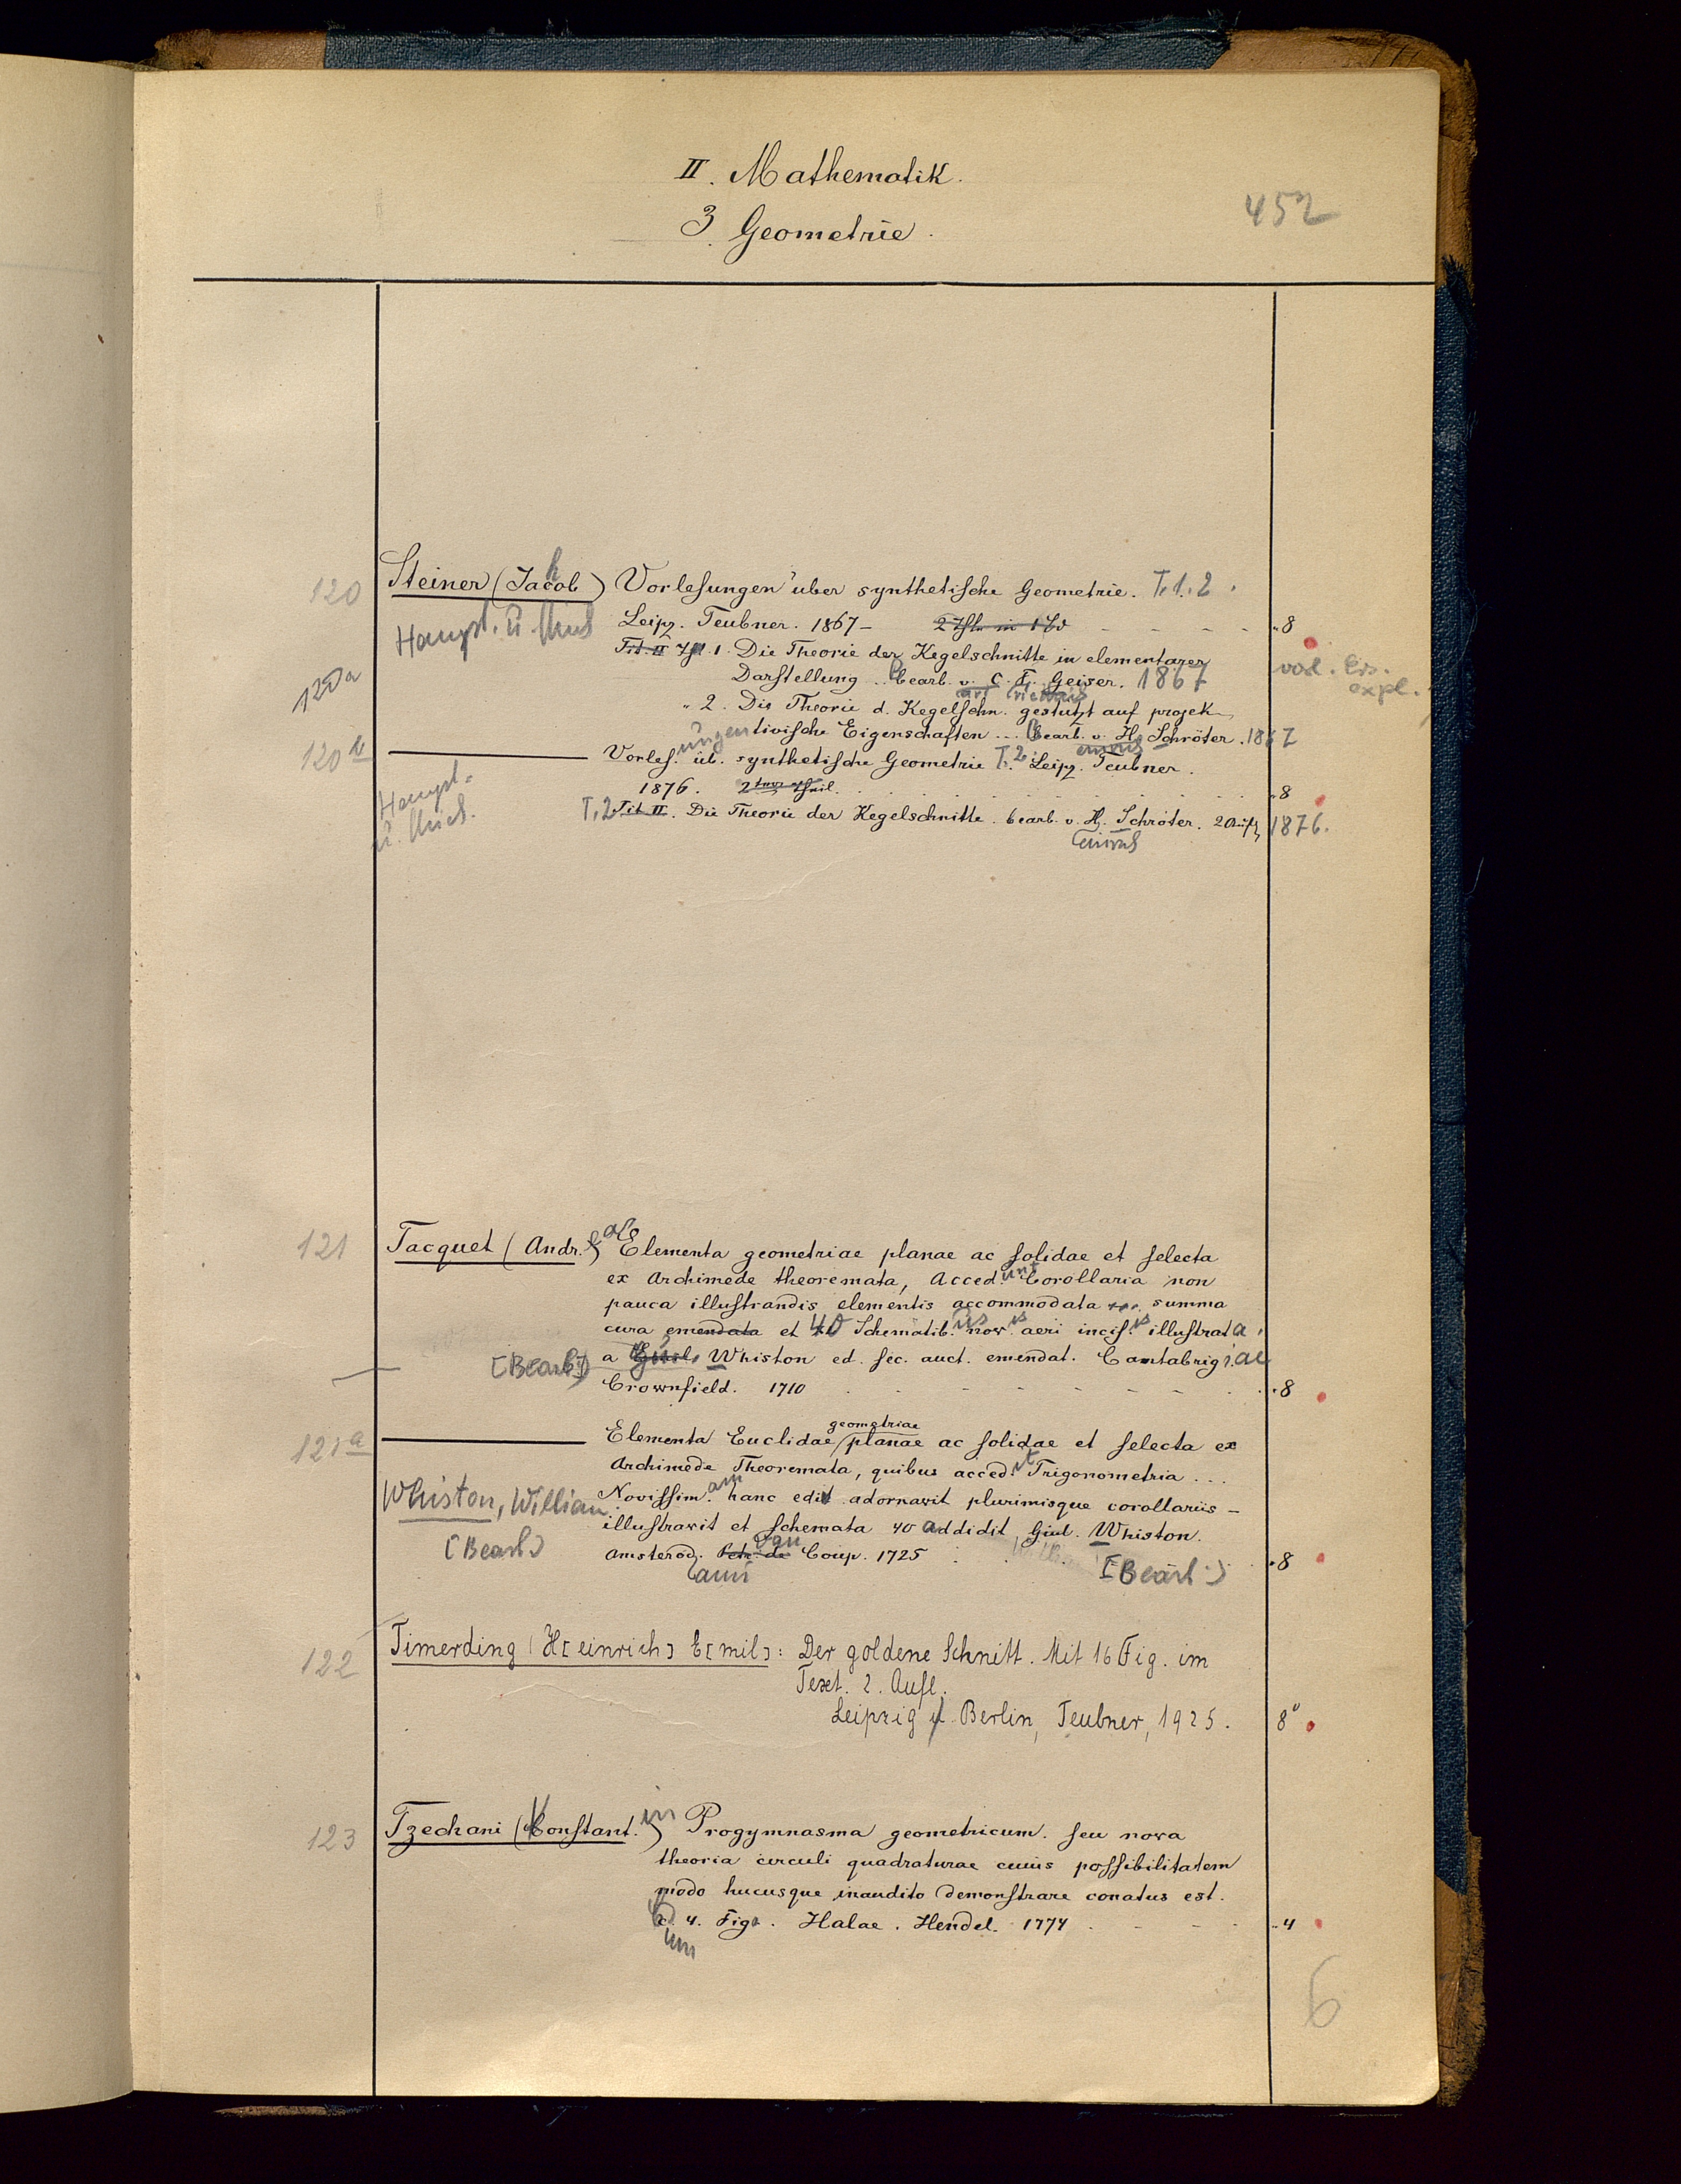 II. Mathematik.
3. Geometrie.
452
120 Steiner (Jacob) Vorlesungen über synthetische Geometrie. T. 1. 2.
Haupt. u. Leipz. Teubner. 1867 – 2 Thle in 1 Bd - - - - „8
Tit. II Thl. 1. Die Theorie der Kegelschnitte in elementarer
120a Darstellung .. bearb. v. C. F. Geiser. 1867 vorl. Ers. expl.
„ 2. Die Theorie d. Kegelschn. gestützt auf projek-
tivische Eigenschaften ... bearb. v. H. Schröter. 1867
120b Vorles. ungen üb. synthetische Geometrie T. 2. Leipz. Teubner.
Haupt- 1876. 2ter Theil. „8
T. 2 Tit. II. Die Theorie der Kegelschnitte. bearb. v. H. Schröter. 2 Aufl. 1876.
121 Tacquet (Andr.) Elementa geometriae planae ac solidae et selecta
ex Archimede theoremata, Acced.unt Corollaria non
pauca illustrandis elementis accommodata ... summa
cura emendata et 40 Schematib.us nov.is aeri incis.is illustrata
[Bearb.] a Guil. Whiston ed. sec. auct. emendat. Cantabrigiae
Crownfield. 1710 - - - - „8
121a Elementa Euclidae geometriae planae ac solidae et selecta ex
Archimede Theoremata, quibus acced.it Trigonometria ...
Whiston, William Novissim.am hanc edit adornavit plurimisque corollariis –
illustravit et schemata 40 addidit Giul. Whiston.
[Bearb] Amstelod. Petr. de Coup. 1725 [Bearb.] „8
122 Timerding (H[einrich] E[mil]: Der goldene Schnitt. Mit 16 Fig. im
Text. 2. Aufl.
Leipzig u. Berlin, Teubner, 1925. 8°
123 Tzechani (Constant.in) Progymnasma geometricum. seu nova
theoria circuli quadraturae cuius possibilitatem
modo hucusque inaudito demonstrare conatus est.
c. 4. Figs. Halae. Hendel. 1774 - - - „4
6